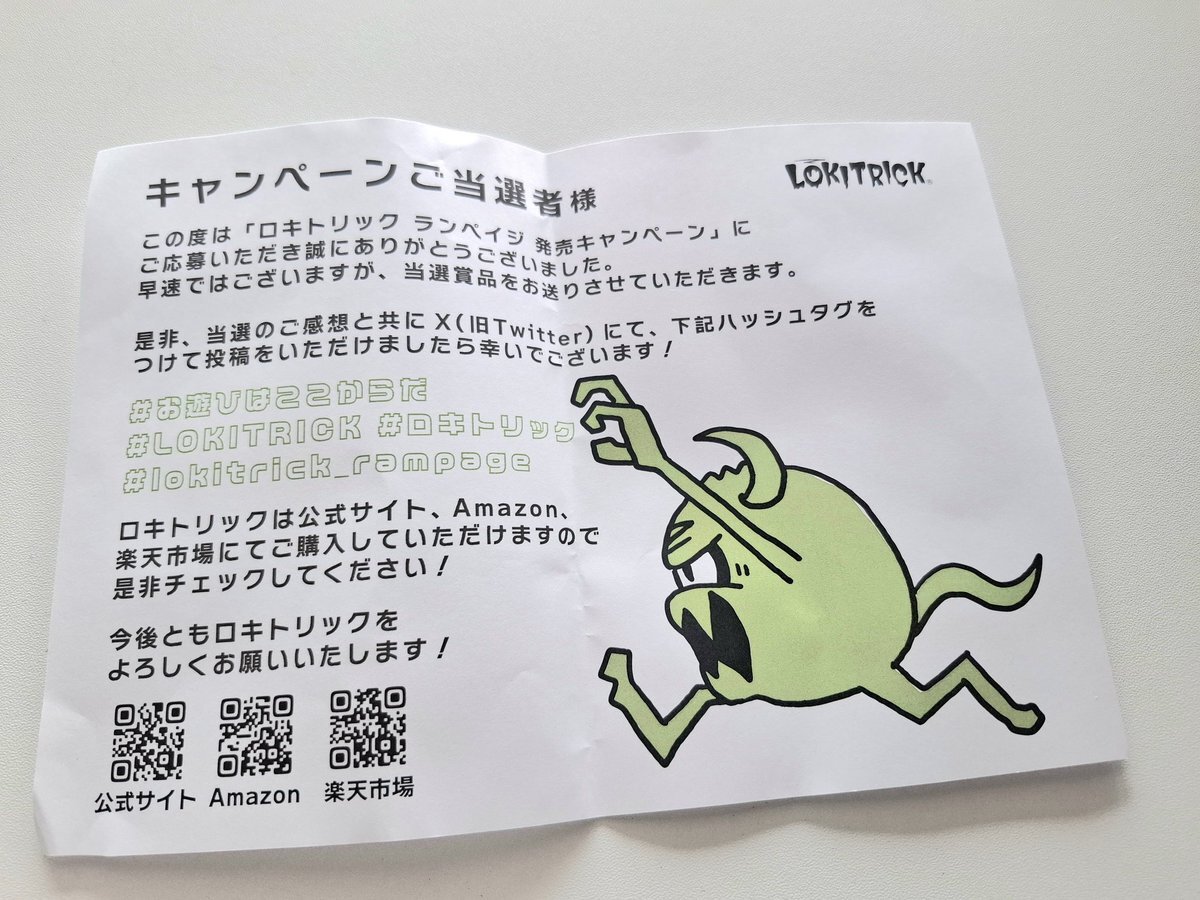 キャンペーンご当選者様
LOKITRICK
この度は「ロキトリック ランペイジ 発売キャンペーン」に
ご応募いただき誠にありがとうございました。
早速ではございますが、当選賞品をお送りさせていただきます。
是非、当選のご感想と共に X(旧Twitter)にて、下記ハッシュタグを
つけて投稿をいただけましたら幸いでございます！
#お遊びは22からだ
#LOKITRICK #ロキトリック
#lokitrick_rampage
ロキトリックは公式サイト、Amazon、
楽天市場にてご購入していただけますので
是非チェックしてください！
今後ともロキトリックを
よろしくお願いいたします！
公式サイト Amazon 楽天市場